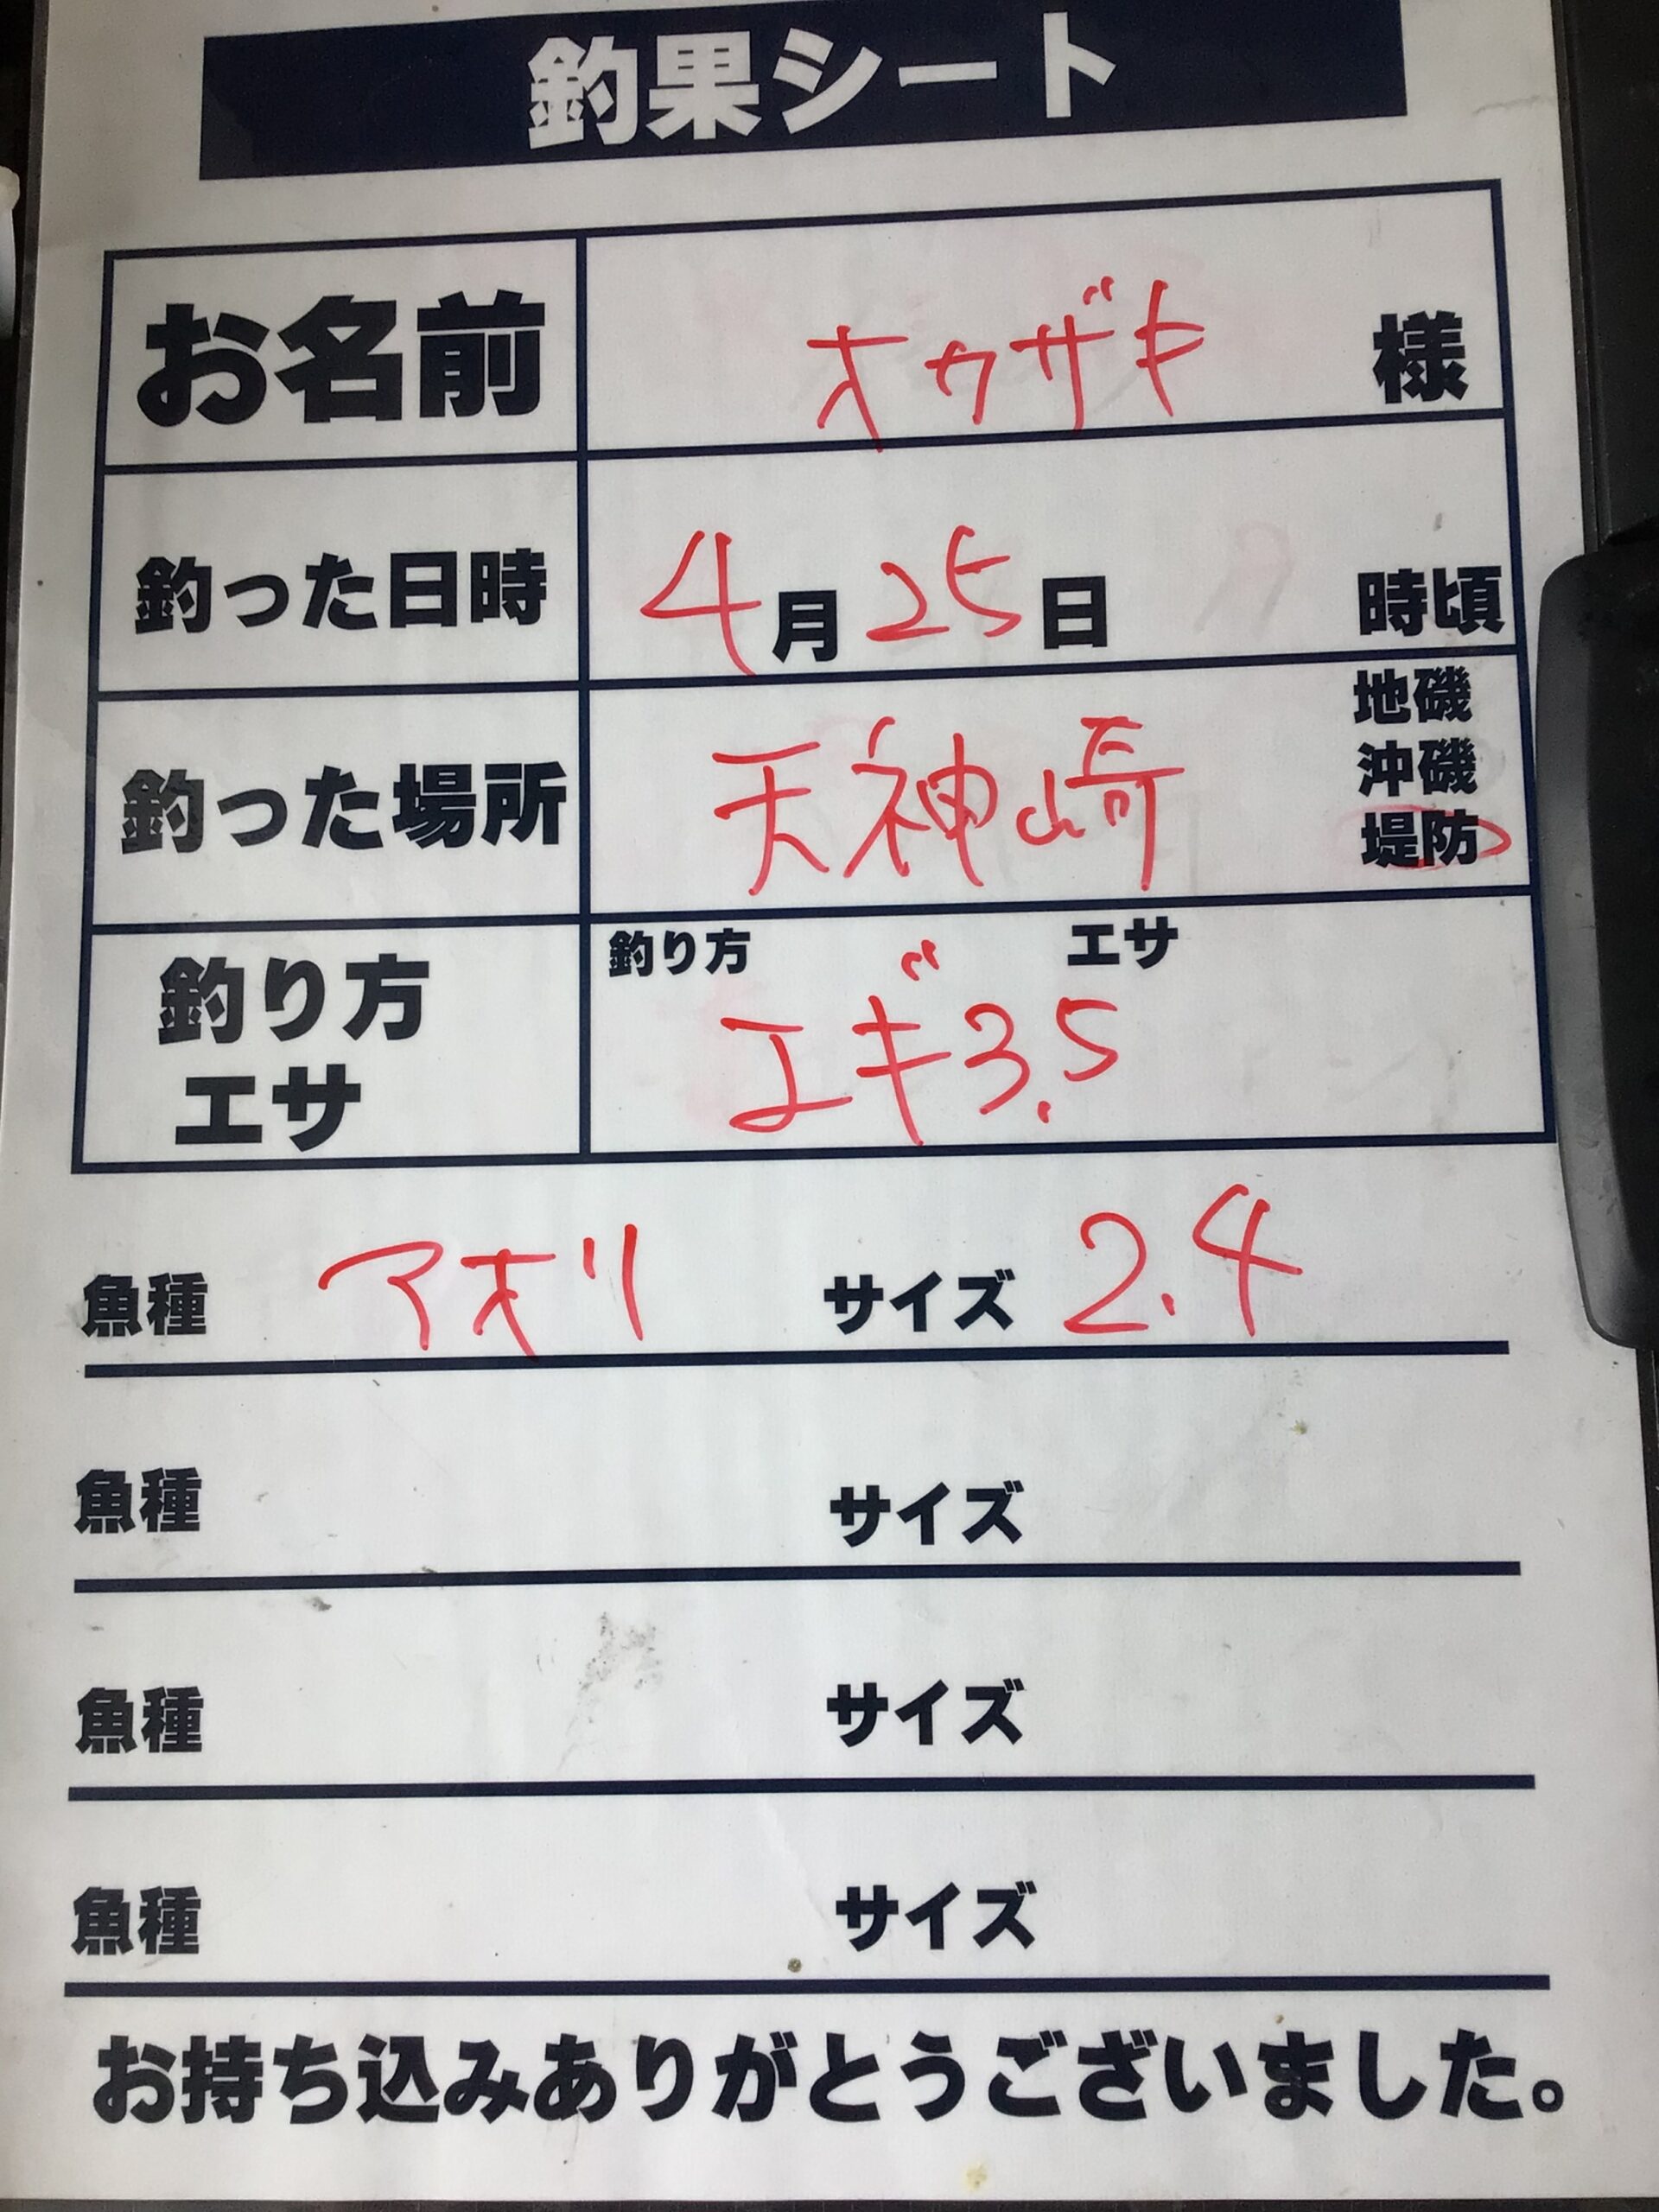 釣果シート
お名前 オカザキ 様
釣った日時 4月25日 時頃
釣った場所 天神崎 地磯 沖磯 堤防
釣り方 エサ
釣り方 エサ
エギ3.5
魚種 アオリ サイズ 2.4
魚種 サイズ
魚種 サイズ
魚種 サイズ
お持ち込みありがとうございました。